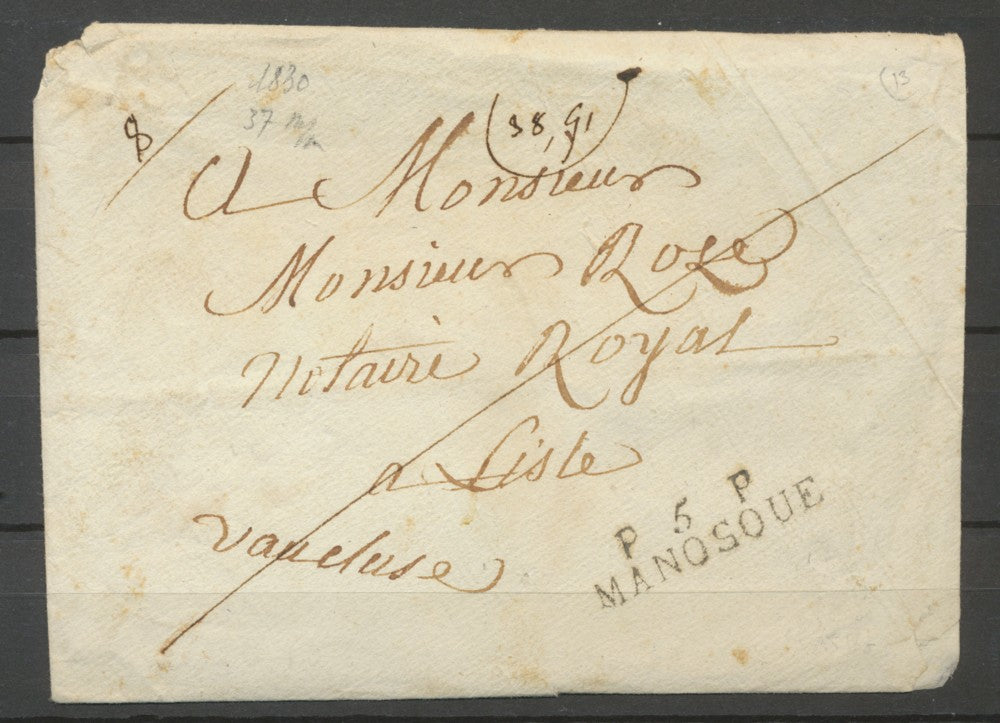 1830
37 m/m
8
(38,91
(13
A Monsieur
Monsieur Rose
Notaire Royal
a Lisle
Vaucluse
P 5 P
MANOSQUE